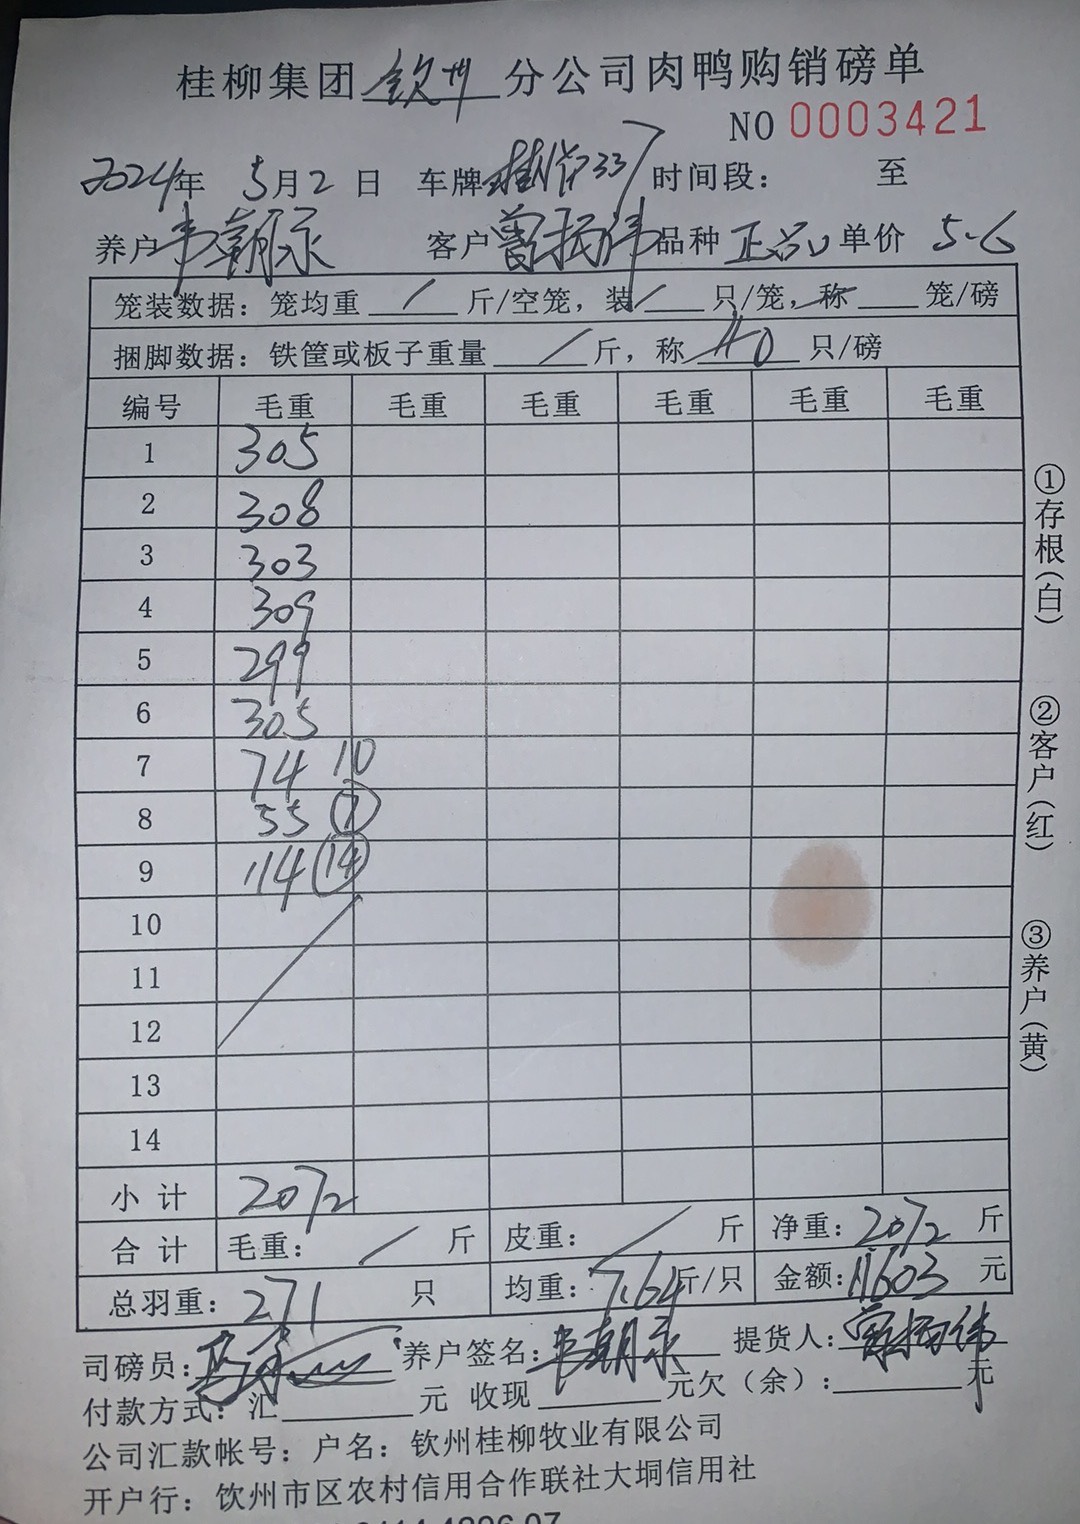 桂柳集团钦州分公司肉鸭购销磅单
NO 0003421
2024年 5月2日 车牌 337 时间段： 至
养户韦朝永 客户曾振伟品种正品单价 5.6
笼装数据：笼均重 / 斤/空笼，装 / 只/笼，称 笼/磅
捆脚数据：铁筐或板子重量 / 斤，称 40 只/磅
编号 毛重 毛重 毛重 毛重 毛重 毛重
1 305
2 308
3 303
4 309
5 299
6 305
7 74 10
8 55 7
9 114 14
10
11
12
13
14
小计 2072
合计 毛重： / 斤 皮重： / 斤 净重：2072 斤
总羽重：271 只 均重：7.64斤/只 金额：11603 元
司磅员： 养户签名：韦朝永 提货人：曾振伟
付款方式：汇 元 收现 元欠（余）： 元
公司汇款帐号：户名：钦州桂柳牧业有限公司
开户行：钦州市区农村信用合作联社大垌信用社
①存根（白）
②客户（红）
③养户（黄）